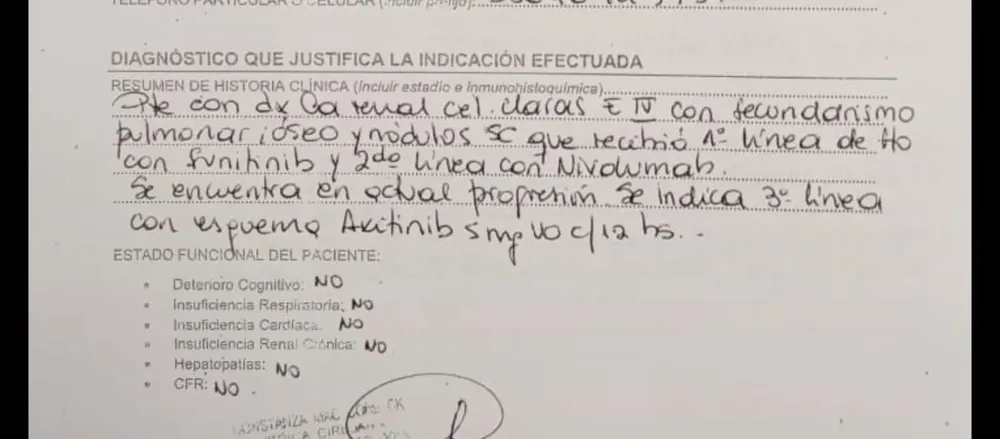 TELÉFONO PARTICULAR O CELULAR (incluir prefijo):
DIAGNÓSTICO QUE JUSTIFICA LA INDICACIÓN EFECTUADA
RESUMEN DE HISTORIA CLÍNICA (incluir estadio e Inmunohistoquímica)
Pte con dx Ca renal cel. claras E IV con secundarismo
pulmonar, óseo y nódulos SC que recibió 1º línea de tto
con sunitinib y 2do línea con Nivolumab.
Se encuentra en actual progresión. Se indica 3º línea
con esquema Axitinib 5 mg VO c/12 hs. -
ESTADO FUNCIONAL DEL PACIENTE:
Deterioro Cognitivo: NO
Insuficiencia Respiratoria: NO
Insuficiencia Cardíaca: NO
Insuficiencia Renal Crónica: NO
Hepatopatías: NO
CFR: NO.
CONSTANZA MAC